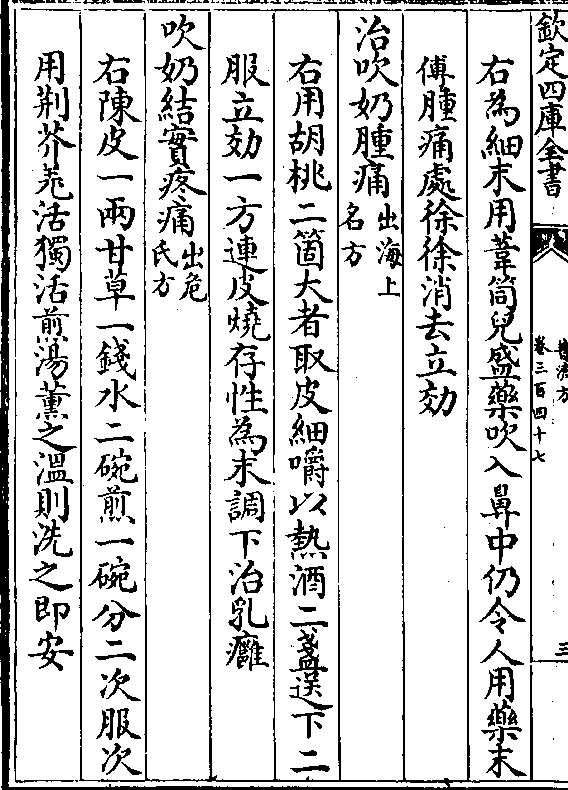 欽定四庫全書
普濟方
卷三百四十七
三
右為細末用葦筒兒盛藥吹入鼻中仍令人用藥末
傅腫痛處徐徐消去立効
治吹奶腫痛出海上名方
右用胡桃二箇大者取皮細嚼以熱酒二盞送下二
服立効一方連皮燒存性為末調下治乳癰
吹奶結實疼痛出危氏方
右陳皮一兩甘草一錢水二碗煎一碗分二次服次
用荆芥羌活獨活煎湯薰之溫則洗之即安